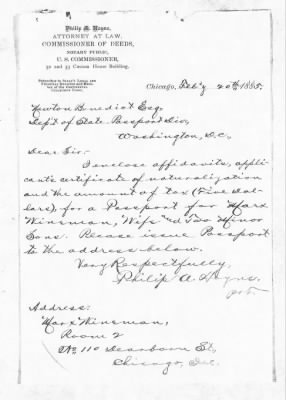 Philip A. Hoyne,
ATTORNEY AT LAW,
COMMISSIONER OF DEEDS,
NOTARY PUBLIC,
U. S. COMMISSIONER,
Custom House Building.
Chicago, Feb'y 20th 1885.
Newton Benedict Esq.
Dept. of State Passport Div,
Washington, D.C.,
Dear Sir:-
I enclose affidavits, appli-
cant's certificate of naturalization
and the amount of tax (Five dol-
lars), for a Passport for Marx
Wineman, Wife and Two Minor
Sons. Please issue Passport
to the address below.
Very Respectfully,
Philip A. Hoyne.
Address:
Marx Wineman,
Room 2
No. 110 Dearborn St,
Chicago,